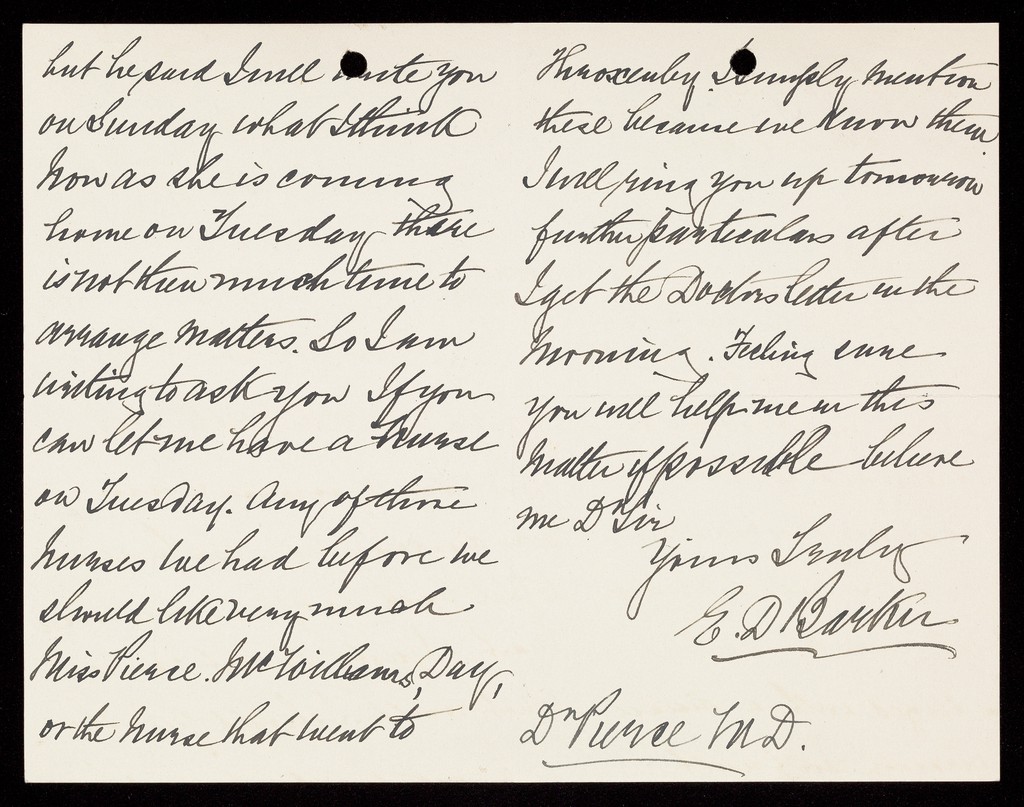 but he said I will write you
on Sunday what I think
Now as she is coming
home on Tuesday there
is not then much time to
arrange matters. So I am
writing to ask you If you
can let me have a Nurse
on Tuesday. Any of those
Nurses we had before we
should like very much
Miss Pierce. McWilliams, Day,
or the Nurse that went to
Throxenby. I simply mention
these because we know them.
I will ring you up tomorrow
further particulars after
I get the Doctors letter in the
Morning. Feeling sure
you will help me in this
Matter if possible believe
me Dr Sir
Yours Truly
E. D Barker
Dr Pierce M D.